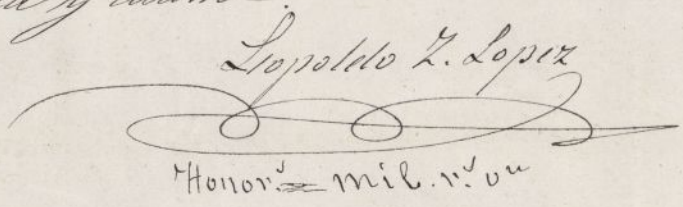 y
Leopoldo Z. Lopez
Honor.s = mil r.s vn